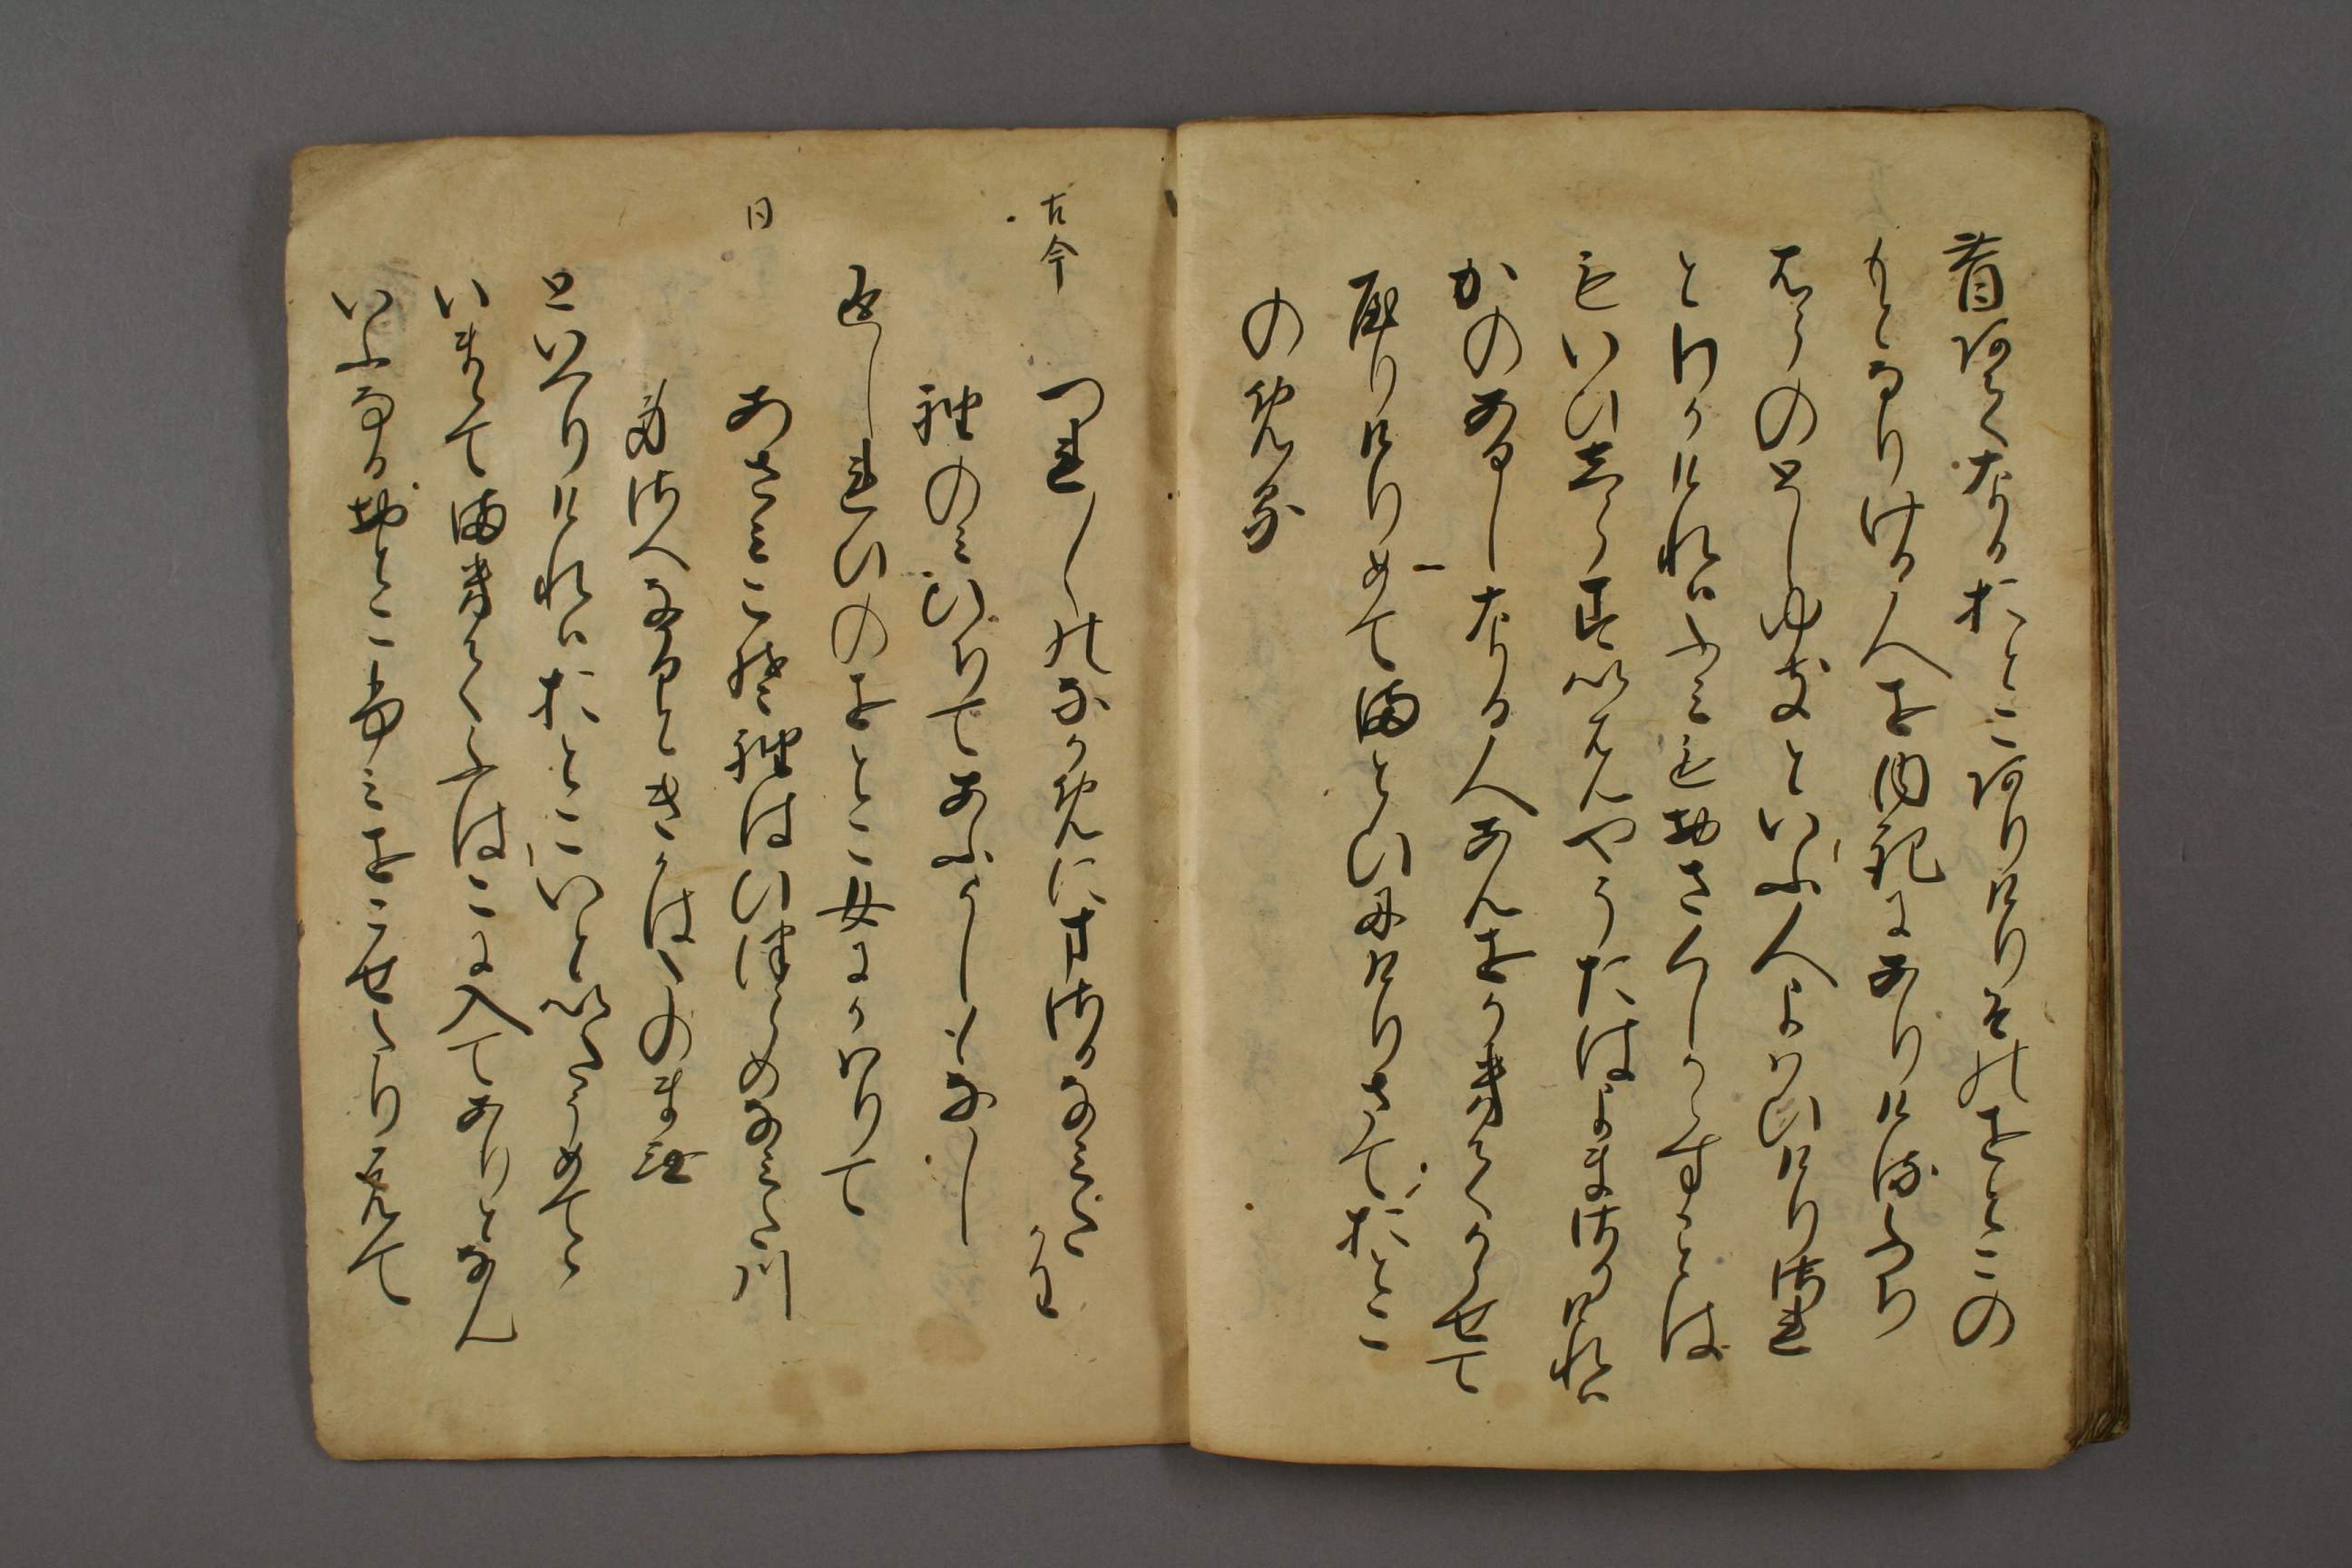 昔あてなるおとこありけりそのをとこの
もとなりける人を内記にありけるふち
はらのとしゆきといふ人よはひけりされ
とわかけれはふみもおさ〱しからすことは
もいひしらすいはんやうたはよまさりけれは
かのあるしなる人あんをかきてかゝせて
やりけりめてまとひにけりさておとこ
のよめる
古今
つれ〱のなかめにまさるなみたかは
袖のみひちてあふよしもなし
返しれいのをとこ女にかはりて
同
あさみこそ袖はひつらめなみた川
身さへなかるときかはたのまむ
といへりけれはおとこいといたうめてゝ
いまゝてまきてふはこに入てありとなん
いふなるおとこふみをこせたり元て